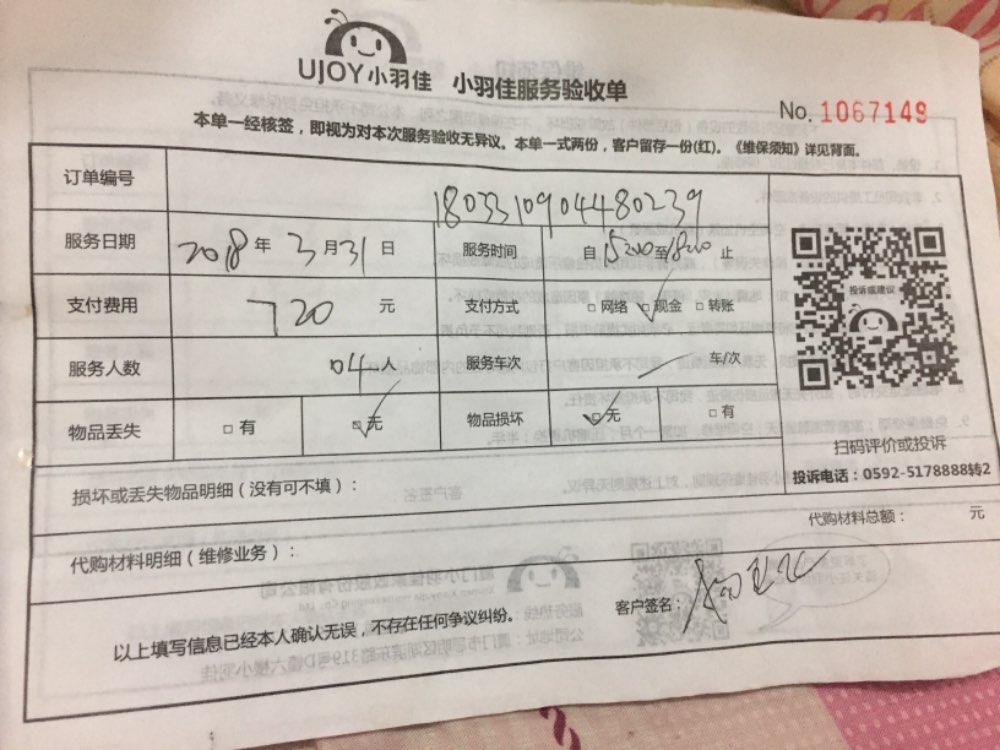 UJOY小羽佳 小羽佳服务验收单
No. 1067149
本单一经核签，即视为对本次服务验收无异议。本单一式两份，客户留存一份(红)。《维保须知》详见背面。
订单编号 1803310904480239
服务日期 2018年3月31日 服务时间 自15:00至18:00止
支付费用 720元 支付方式 □网络 □现金 □转账
服务人数 04人 服务车次 车/次
物品丢失 □有 □无 物品损坏 □无 □有
投诉或建议
扫码评价或投诉
投诉电话：0592-5178888转2
损坏或丢失物品明细（没有可不填）：
代购材料明细（维修业务）： 代购材料总额： 元
以上填写信息已经本人确认无误，不存在任何争议纠纷。 客户签名：